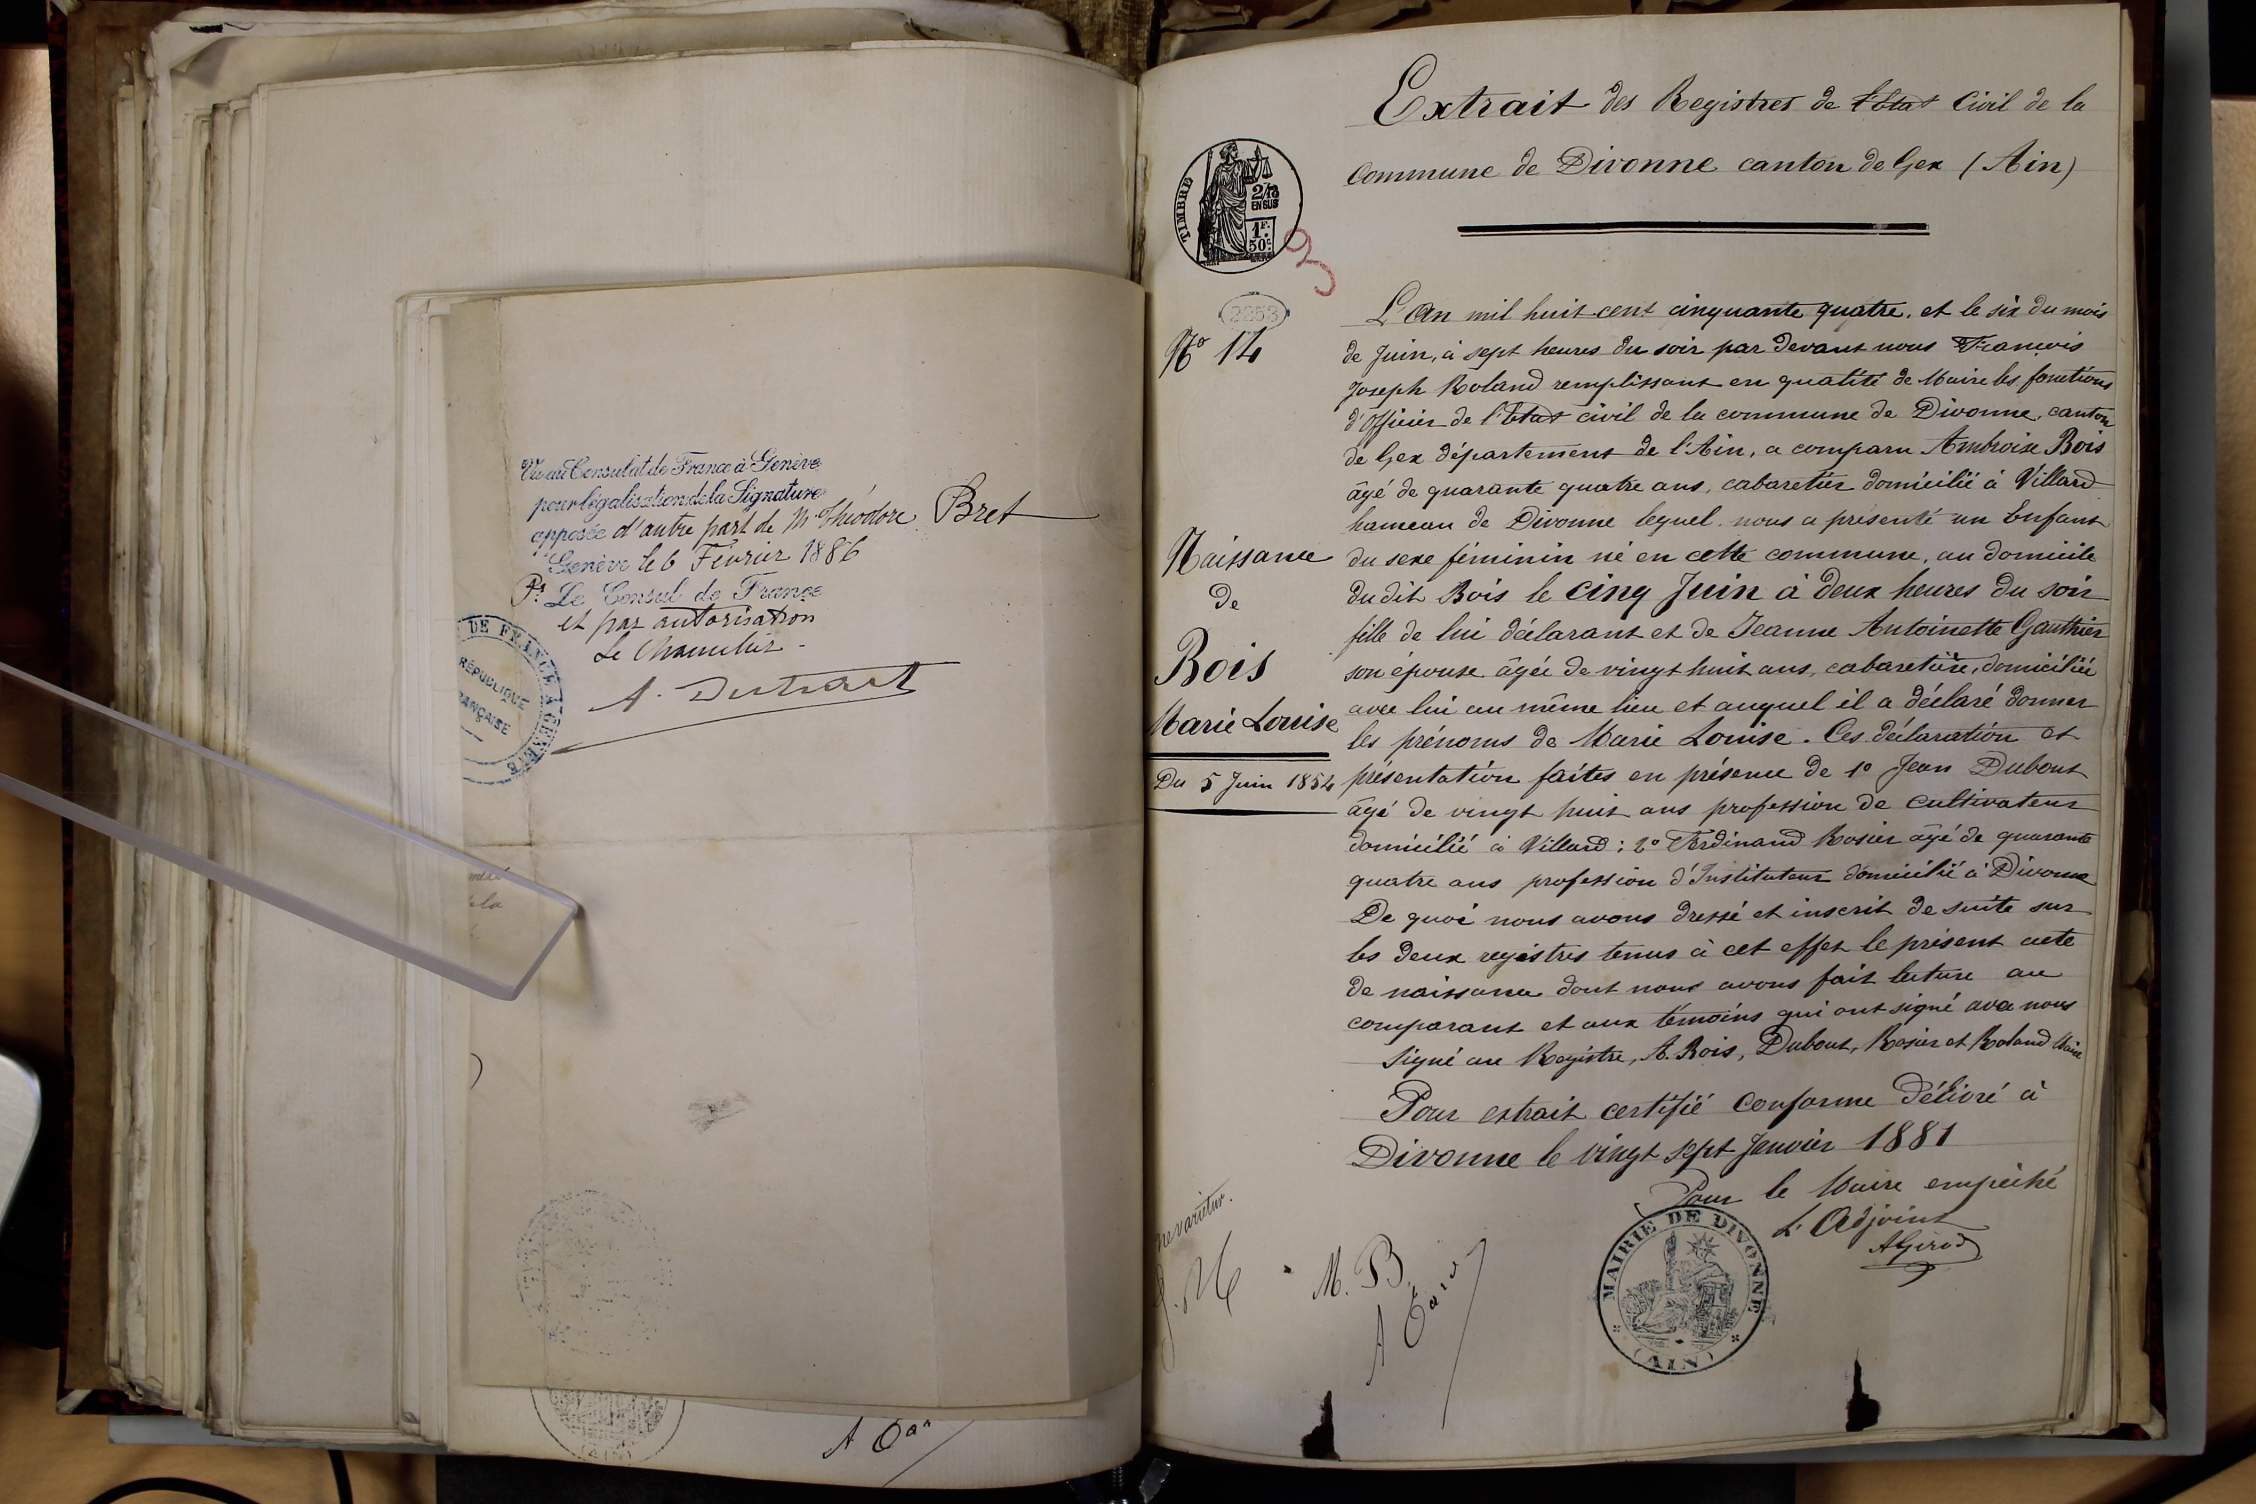 Vu au Consulat de France à Genève
pour légalisation de la Signature
apposée d'autre part de Mr Théodore Bret
Genève le 6 Février 1886
Pr Le Consul de France
et par autorisation
Le Chancelier
DE FRANCE A GENEVE
RÉPUBLIQUE
ANÇAISE
Extrait des Registres de l'Etat Civil de la
Commune de Divonne canton de Gex (Ain)
TIMBRE
2/10
EN SUS
1F.
50c.
2253
No 14
Naissance
de
Bois
Marie Louise
Du 5 Juin 1854
L'An mil huit cent cinquante quatre, et le six du mois
de Juin, à sept heures du soir par devant nous François
Joseph Roland remplissant en qualité de Maire les fonctions
d'Officier de l'Etat civil de la commune de Divonne, canton
de Gex département de l'Ain, a comparu Ambroise Bois
âgé de quarante quatre ans, cabaretier domicilié à Villard
hameau de Divonne lequel nous a présenté un Enfant
du sexe féminin né en cette commune, au domicile
du dit Bois le cinq Juin à deux heures du soir
fille de lui déclarant et de Jeanne Antoinette Gauthier
son épouse âgée de vingt huit ans, cabaretière, domiciliée
avec lui au même lieu et auquel il a déclaré donner
les prénoms de Marie Louise. Ces déclaration et
présentation faites en présence de 1o Jean Dubout
âgé de vingt huit ans profession de cultivateur
domicilié à Villard; 2o Ferdinand Rosier âgé de quarante
quatre ans profession d'Instituteur domicilié à Divonne
De quoi nous avons dressé et inscrit de suite sur
les deux registres tenus à cet effet le présent acte
de naissance dont nous avons fait lecture au
comparant et aux témoins qui ont signé avec nous
Signé au Registre, A. Bois, Dubout, Rosier et Roland Maire
Pour extrait certifié conforme Délivré à
Divonne le vingt sept Janvier 1881
Pour le Maire empêché
L'Adjoint
AGirod
MAIRIE DE DIVONNE
(AIN)
ne varietur.
J. M
M. B.